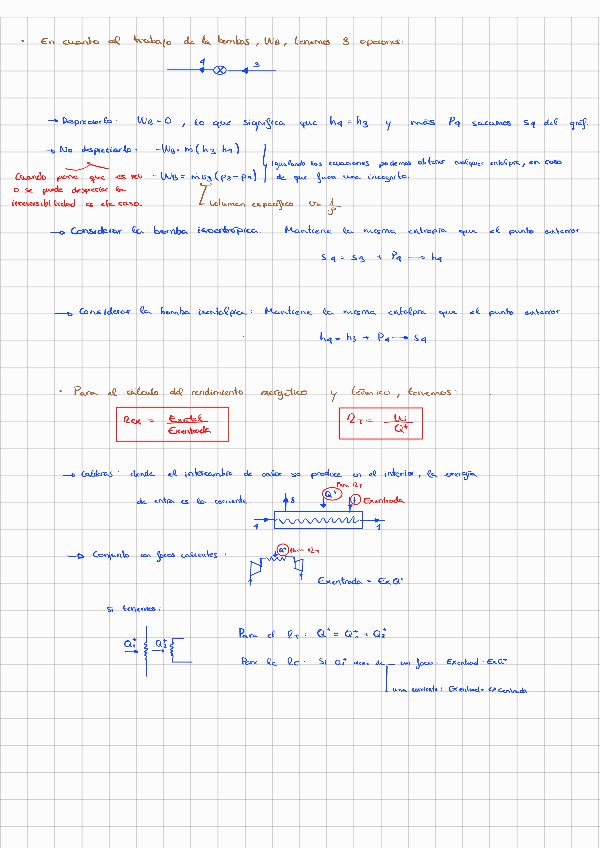 · En cuanto al trabajo de la bombas, WB, tenemos 3 opciones:
4 3
→ Despreciarlo: WB = 0, lo que significa que h4 = h3 y más P4 sacamos s4 del gráf.
→ No despreciarlo: -WB = ṁ(h3 h4)
igualando las ecuaciones podemos obtener cualquier entalpía, en caso
Cuando pone que es rev - WB = ṁ v3 (p3 - p4) de que fuera una incognita.
o se puede despreciar la
irreversibilidad es este caso.
volumen específico v = 1/ρ
→ Considerar la bomba isoentrópica: Mantiene la misma entropía que el punto anterior
s4 = s3 + P4 → h4
→ Considerar la bomba isentálpica: Mantiene la misma entalpía que el punto anterior
h4 = h3 + P4 → s4
· Para el cálculo del rendimiento exergético y térmico, tenemos:
ηex = Exútil / Exentrada ηT = Wi / Q+
→ Calderas: donde el intercambio de calor se produce en el interior, la exergía
de entra es la corriente
Para ηT
8 Q+ 7 Exentrada
4 1
→ Conjunto con focos calientes:
Q+ Para ηT
Exentrada = ExQ+
Si tenemos:
Para el ηT: Q+ = Q1+ + Q2+
Q1+ Q2+
Para la Si Q1+ viene de un foco: Exentrad = ExQ+
una corriente: Exentrad = excentrada